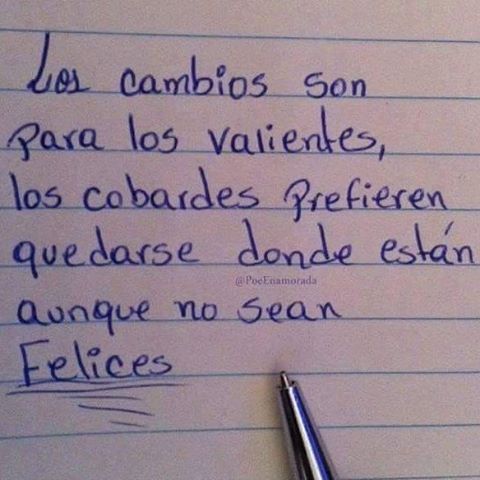 Los cambios son
para los valientes,
los cobardes prefieren
quedarse donde están
@PoeEnamorada
aunque no sean
Felices